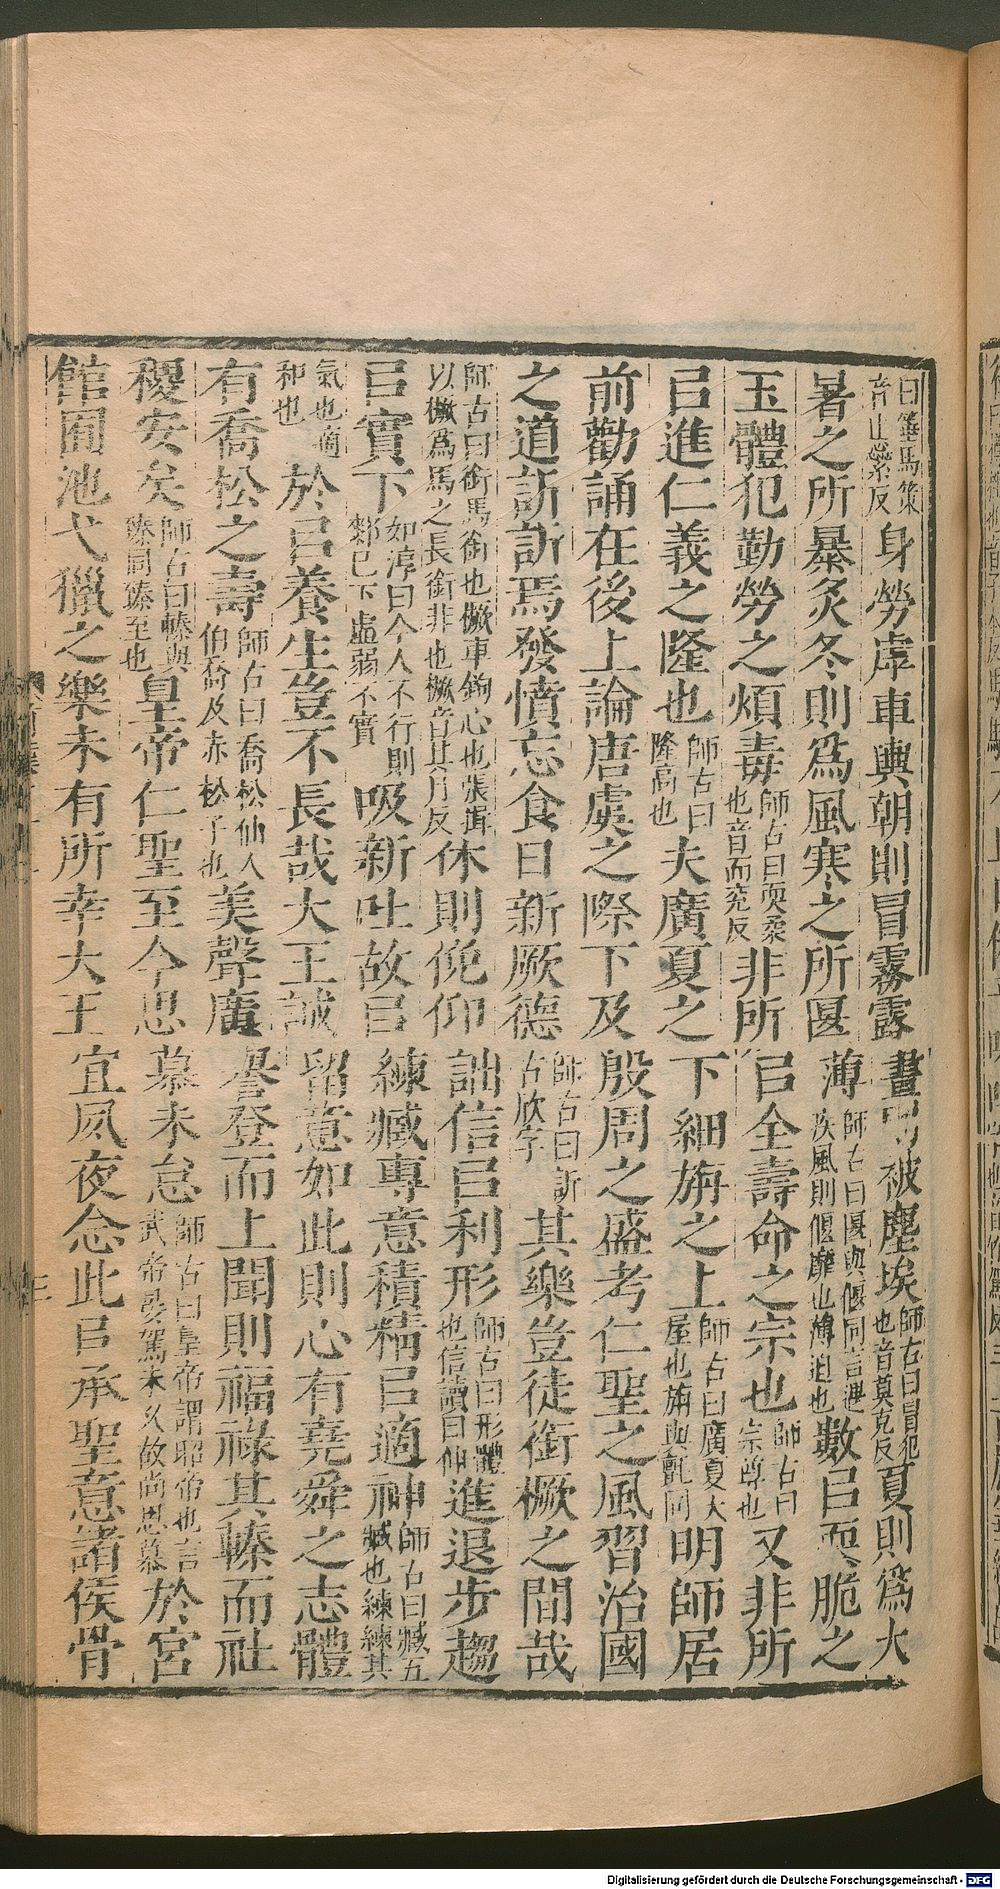 曰箠馬策音止橤反身勞虖車輿朝則冒霧露晝則被塵埃師古曰冒犯也音莫克反夏則爲大
暑之所暴炙冬則爲風寒之所匽薄師古曰匽與偃同言遇疾風則偃靡也薄迫也數㠯耎脆之
玉體犯勤勞之煩毒師古曰耎柔也音而兖反非所㠯全壽命之宗也師古曰宗尊也又非所
㠯進仁義之隆也師古曰隆高也夫廣夏之下細旃之上師古曰廣夏大屋也旃與氈同明師居
前勸誦在後上論唐虞之際下及殷周之盛考仁聖之風習治國
之道訢訢焉發憤忘食日新厥德師古曰訢古欣字其樂豈徒銜橛之間哉
師古曰銜馬銜也橛車鉤心也張揖以橛爲馬之長銜非也橛音其月反休則俛仰詘信㠯利形師古曰形體也信讀曰伸進退步趨
㠯實下如淳曰今人不行則郯已下虛弱不實吸新吐故㠯練臧專意積精㠯適神師古曰臧五臧也練練其
氣也適和也於㠯養生豈不長哉大王誠留意如此則心有堯舜之志體
有喬松之壽師古曰喬松仙人伯喬及赤松子也美聲廣譽登而上聞則福祿其轃而社
稷安矣師古曰轃與臻同臻至也皇帝仁聖至今思慕未怠師古曰皇帝謂昭帝也言武帝晏駕未久故尚思慕於宮
館囿池弋獵之樂未有所幸大王宜夙夜念此㠯承聖意諸侯骨
Digitalisierung gefördert durch die Deutsche Forschungsgemeinschaft - DFG